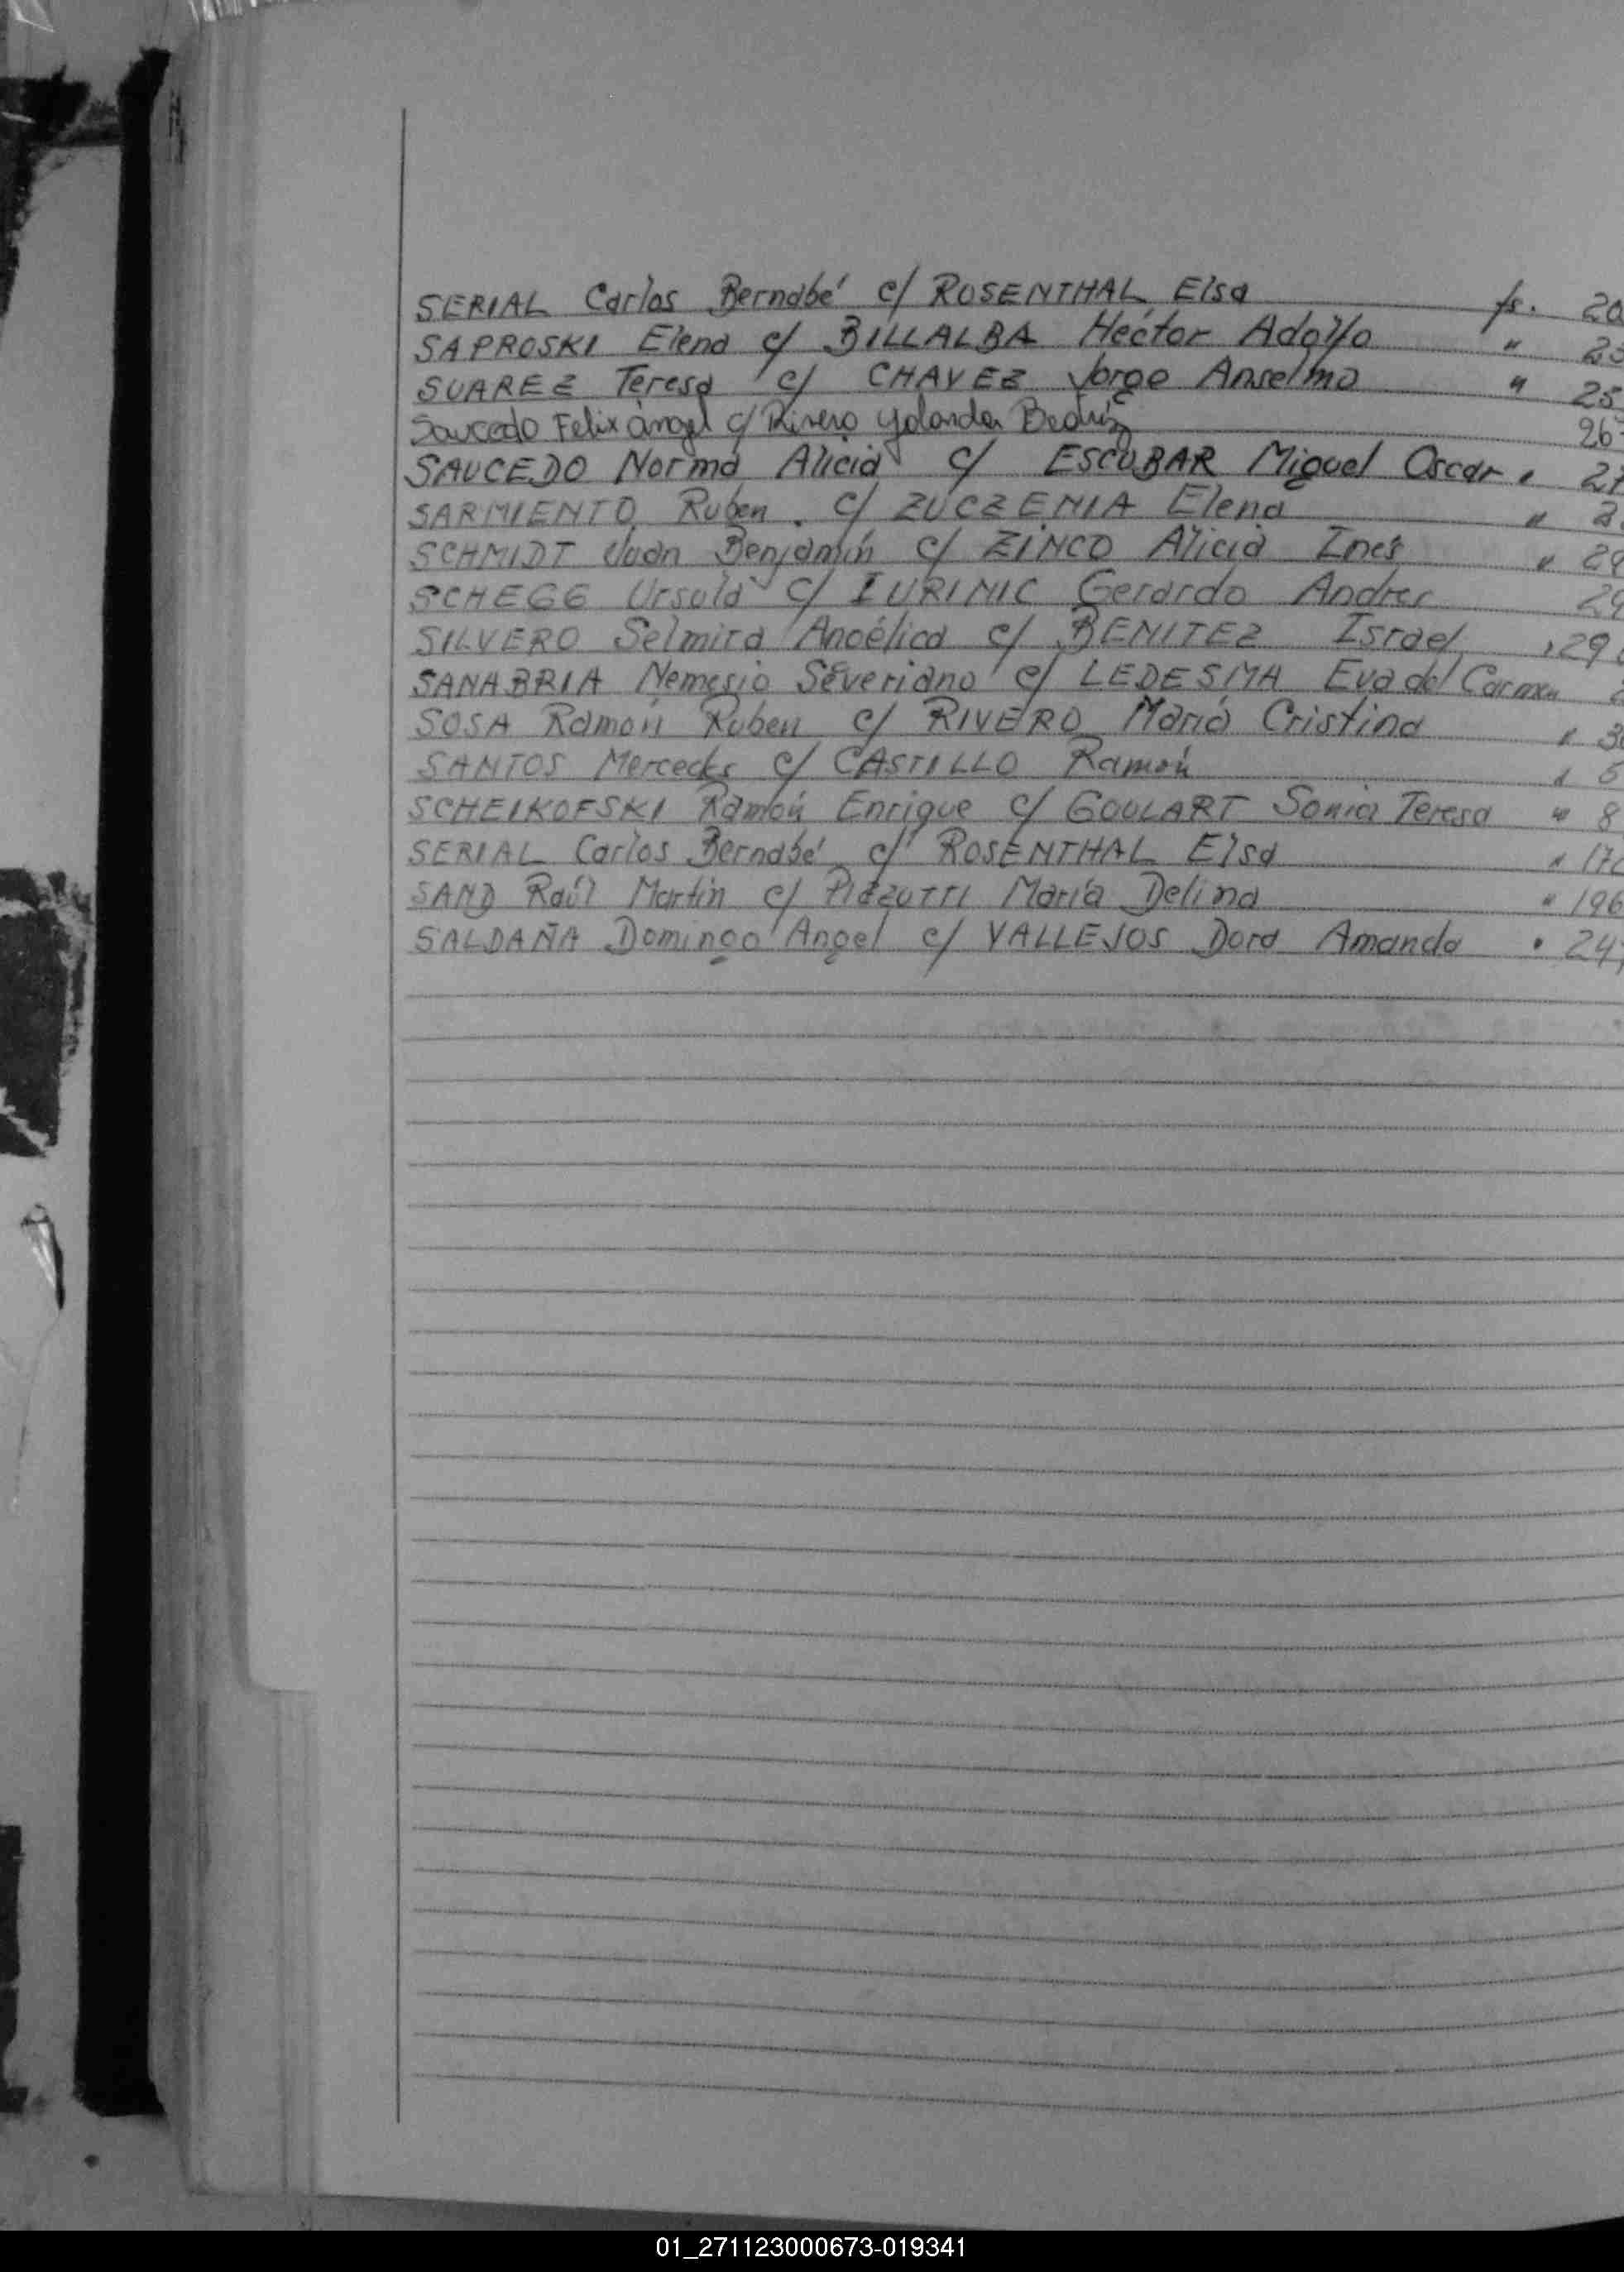 SERIAL Carlos Bernabé c/ ROSENTHAL Elsa fs. 20
SAPROSKI Elena c/ BILLALBA Héctor Adolfo " 23
SUAREZ Teresa c/ CHAVEZ Jorge Anselmo " 25
Saucedo Felix ángel c/ Rivero Yolanda Beatriz 26
SAUCEDO Norma Alicia c/ ESCOBAR Miguel Oscar " 27
SARMIENTO Ruben c/ ZUCZENIA Elena " 2
SCHMIDT Juan Benjamín c/ ZINCO Alicia Inés " 29
SCHEGG Ursula c/ IURINIC Gerardo Andres 29
SILVERO Selmira Angélica c/ BENITEZ Israel " 29
SANABRIA Nemesio Severiano c/ LEDESMA Eva del Carmen
SOSA Ramón Ruben c/ RIVERO María Cristina " 3
SANTOS Mercedes c/ CASTILLO Ramón "
SCHEIKOFSKI Ramón Enrique c/ GOULART Sonia Teresa " 8
SERIAL Carlos Bernabé c/ ROSENTHAL Elsa " 17
SAND Raúl Martin c/ PIEZUTTI María Delina " 196
SALDAÑA Domingo Angel c/ VALLEJOS Dora Amanda " 24
01_271123000673-019341